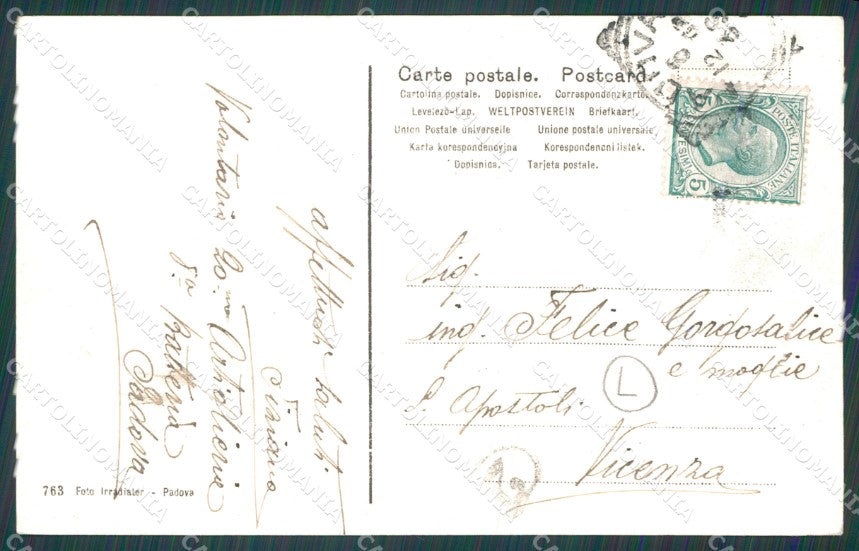 Carte postale. Postcard.
Cartolina postale. Dopisnice. Correspondenzkarte.
Levelező-Lap. WELTPOSTVEREIN Briefkaart.
Union Postale universelle Unione postale universale
Karta korespondencyjna Korespondenčni listek.
Dopisnica. Tarjeta postale.
POSTE ITALIANE
5
5
Sig.
ing. Felice Gorgosalice
e moglie
L
S. Apostoli
Vicenza
affettuosi saluti
Tiziano
Volontario 20mo Artiglieria
8a Batteria
Padova
763 Foto Irradiater - Padova
CARTOLINOMANIA